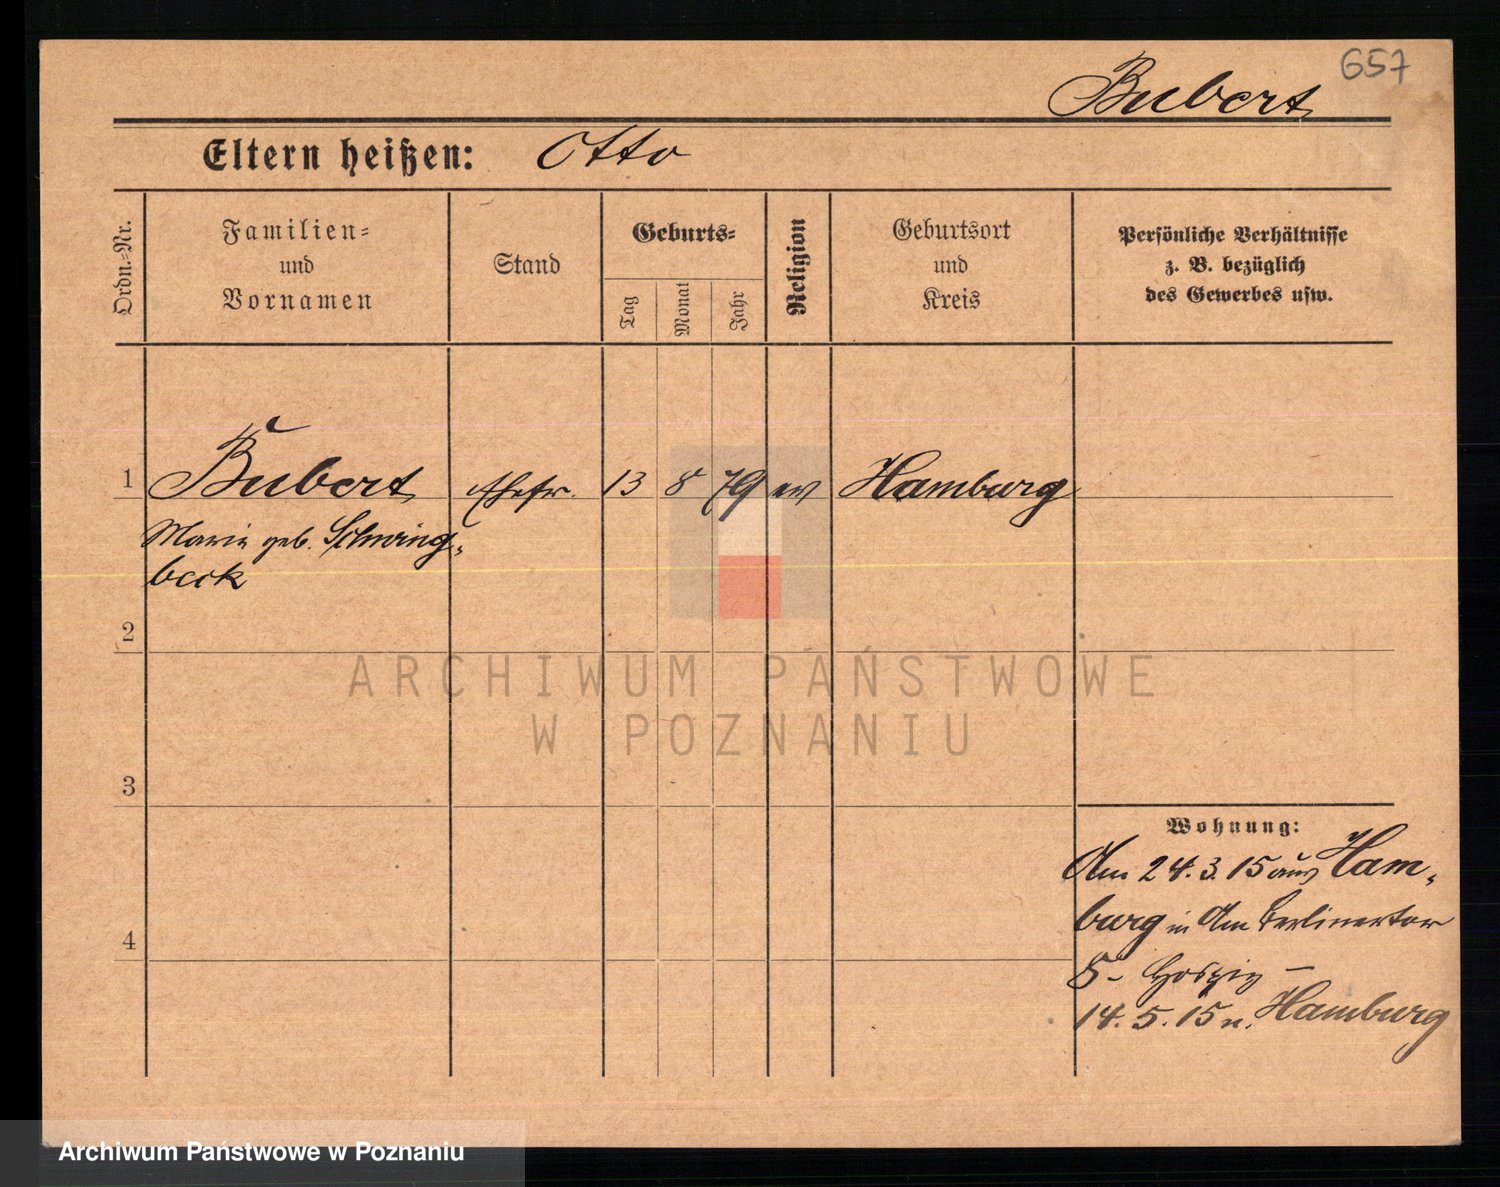 657
Bubert
Eltern heißen: Otto
Ordn.-Nr.
Familien-
und
Vornamen
Stand
Geburts-
Tag
Monat
Jahr
Religion
Geburtsort
und
Kreis
Persönliche Verhältnisse
z. B. bezüglich
des Gewerbes usw.
1 Bubert Ehefr. 13 8 79 ev Hamburg
Marie geb. Schwing-
beck
2
3
4
Wohnung:
Am 24.3.15 aus Ham-
burg in Am Berlinertor
8- Hospiz -
14.5.15 n. Hamburg
ARCHIWUM PAŃSTWOWE
W POZNANIU
Archiwum Państwowe w Poznaniu